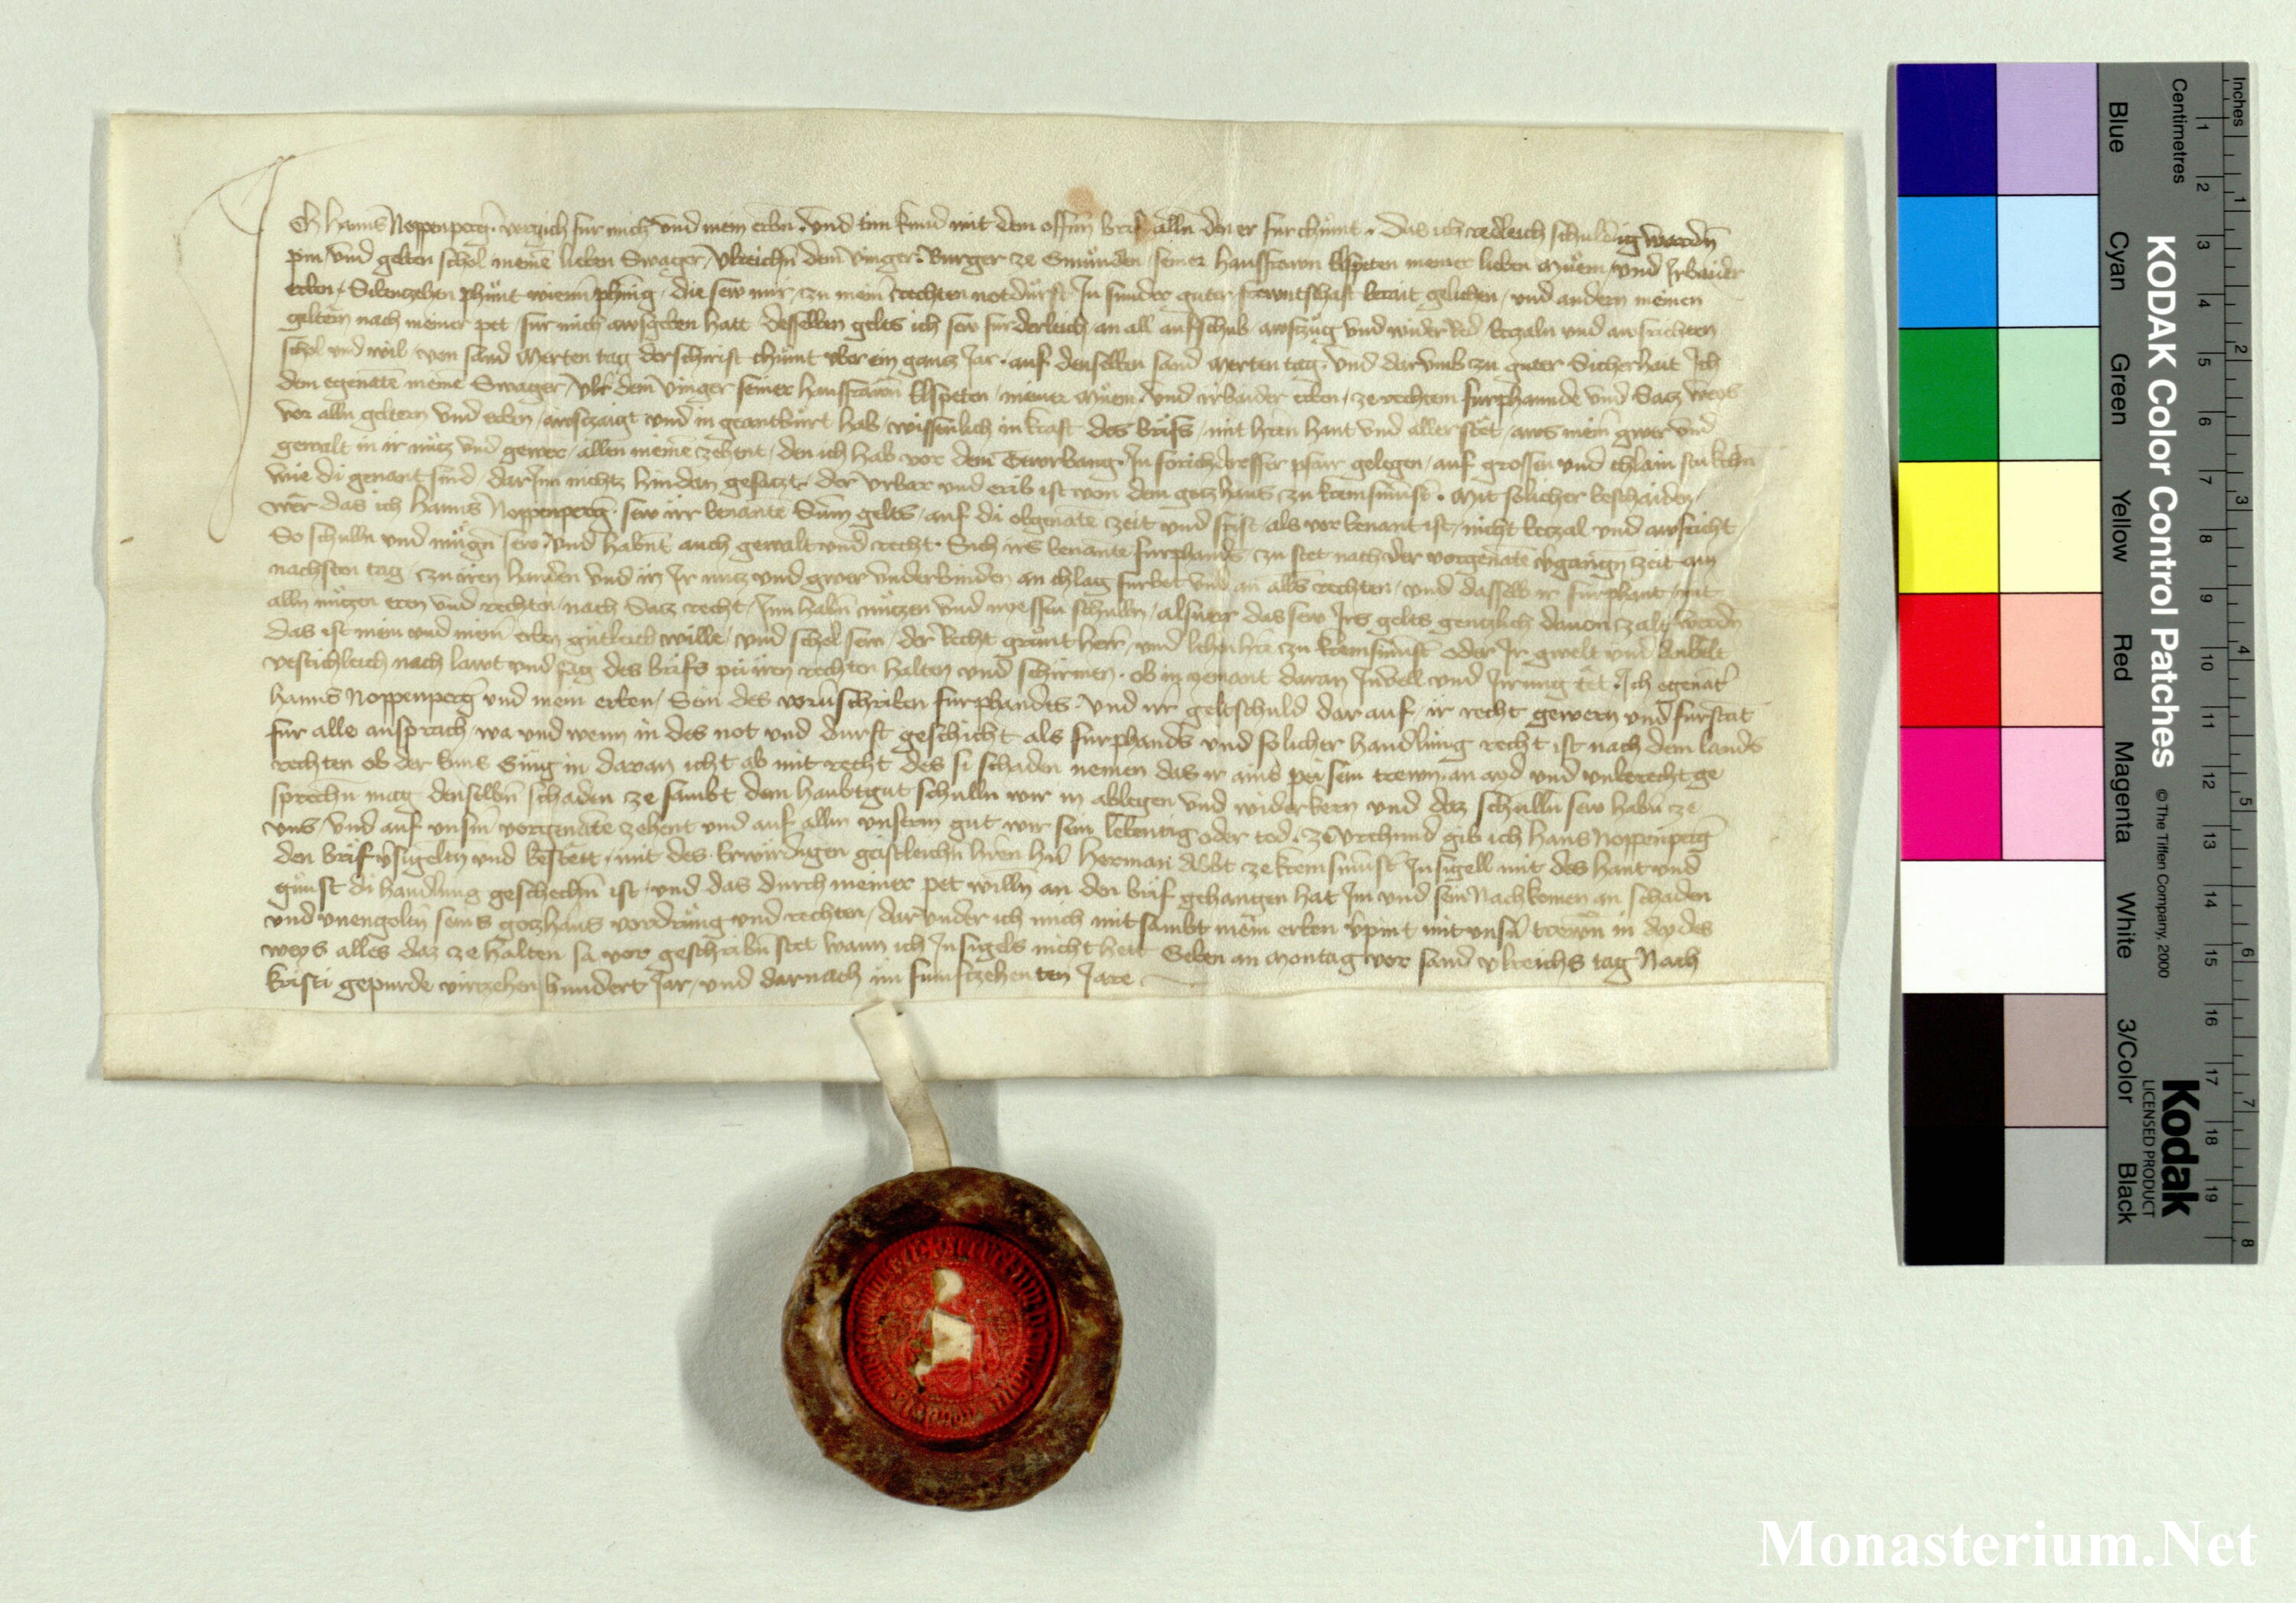 Ich Hanns Noppenperḡ vergich fur mich vnd mein erbn̄ vnd tun kund mit dem offm̄ brif alln̄ den er furchumt das ich redleich schuldig wordn̄
pin vnd gelten schol meinē lieben Swager Vlreichn̄ dem vinger Burger ze Gmunden seiner hausfrawn Elspeten meiner lieben Muem vnd Jr baider
erben Sibenczehen phunt wienn̄ phnīg die sew mir zu mein̄ rechten notdurft Jn sunder guter frewntschaft berait gelihen vnd andern meinen
geltern nach meiner pet fur mich awsgeben hatt desselben gelts ich sew furderleich an all aufschub awfzug vnd wider red beczaln vnd awsrichten
schol vnd wil von sand Merten tag der schirist chumt vber ein gancz Jar auf denselben sand Merten tag vnd darvmb zu guter Sicherhait Jch
dem egenātē meinē Swager Vlr̄ dem vinger seiner hausfrawn̄ Elspeten meiner Muem vnd irr baider erben ze rechtem furphannde vnd Sacz weys
vor alln geltern vnd erben awsczaigt vnd in geantburt hab wissenlich in kraft des briefs mit hern̄ hant vnd aller stet aws mein̄ gwer vnd
gewalt in ir nucz vnd gewer allen meinē zehent den ich hab vor dem gelegen auf grossen vnd chlain stukchn̄
wie di genant sind darJnn nichtz hindan gesaczt der vrbar vnd erib ist von dem gotzhaus czu kremsmunst̄ Mit solicher beschaiden
wer das ich Hanns Noppenperḡ sew irr benante Sum̄ gelts auf di obgenātē zeit vnd frist als vor benant ist nicht beczal vnd awsricht
So schulln vnd mugn̄ sew vnd habn̄t auch gewalt vnd recht Sich irs benante furphands czu stet nach der vorgenātē vgangn̄ zeit am
nachsten tag czu iren handen vnd in Jr nucz vnd gwer vnderbinden an chlag furbot vnd an alls rechten vnd dasselb ir furphant mit
alln nuczen eren vnd rechten nach Sacz recht Jnn habn̄ nuczen vnd niessen schulln als uer das sew Jrs gelts genczlich dauon zalt werdn̄
das ist mein vnd mein̄ erben gutleich wille vnd schol sew der recht grunt herr vnd lehen h̄r czu kremsmunst̄ oder Jr gwelt vnd anbelt
vesticleich nach lawt vnd sag des briefs pei iren rechten halten vnd schirmen ob in yemant daran Jnvell vnd Jrrung tet Jch egenāt̄
Hanns Noppenperḡ vnd mein erben Sein des vorū̄schriben furphandts vnd irr geltschuld dar auf ir recht gewern vnd furstat
fur alle ansprach wa vnd wenn in des not vnd durft geschicht als furphands vnd solicher handlung recht ist nach dem lands
rechten ob der kains Gung in daran icht ab mit recht des si schaden nemen das ir ains pei sein trewn̄ an ayd vnd vnberecht ge
sprechn̄ mag denselbn̄ schaden ze sambt dem haubtgut schulln wir in ablegen vnd widerkern vnd daz schulln̄ sew habn̄ ze
vns vnd auf vnsm̄ vorgenātē zehent vnd auf allm vnserm gut wir sein lebentig oder tod ze vrchund gib ich Hans Noppenperḡ
den brif v̄sigeltn̄ vnd bestett mit des Erwirdigen geistleichn̄ hr̄en h̄n Herman Abbt ze kremsmunst̄ Jnsigell mit des hant vnd
gunst di handlung geschechn̄ ist vnd das durch meiner pet willn̄ an den brif gehangen hat Jm vnd sein̄ Nachkomen an schaden
vnd vnengoltn̄ seins gotzhaus vordrung vnd rechten darvnder ich mich mitsambt mein̄ erben vpint mit vnsn̄ trewn̄ in aydes
weys alles daz ze halten sa vor geschribn̄ stet wann ich Jnsigels nicht hett Geben an Montag vor sand Vlreichs tag Nach
kristi gepurde virczehenhundert Jar vnd darnach im funfczehenten Jare
KODAK Color Control Patches
© The Tiffen Company, 2000
Kodak
LICENSED PRODUCT
Inches
1 2 3 4 5 6 7 8
Centimetres
1 2 3 4 5 6 7 8 9 10 11 12 13 14 15 16 17 18 19
Blue
Cyan
Green
Yellow
Red
Magenta
White
3/Color
Black
Monasterium.Net